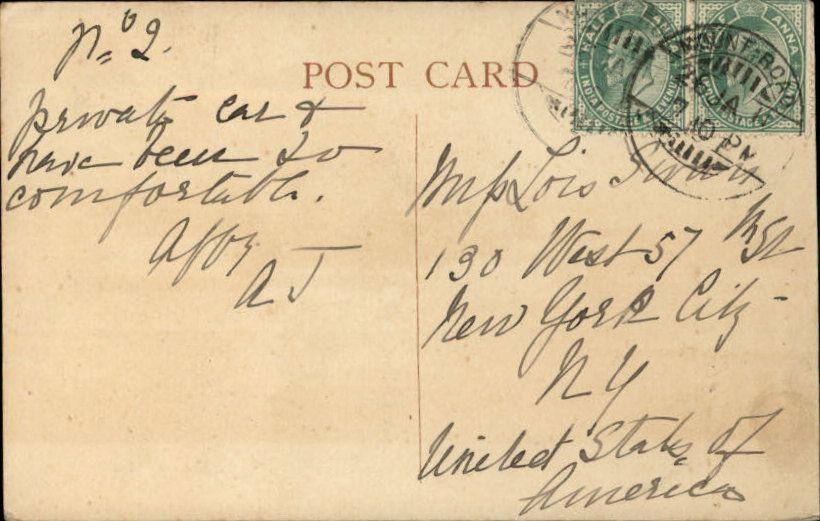 No 2.
POST CARD
private car &
have been so
comfortable.
Affy
A J
Miss Lois
130 West 57th St
New York City
N Y
United States of
America
HALF ANNA
INDIA POSTAGE & REVENUE
HALF ANNA
INDIA POSTAGE & REVENUE
MOUNT-ROAD